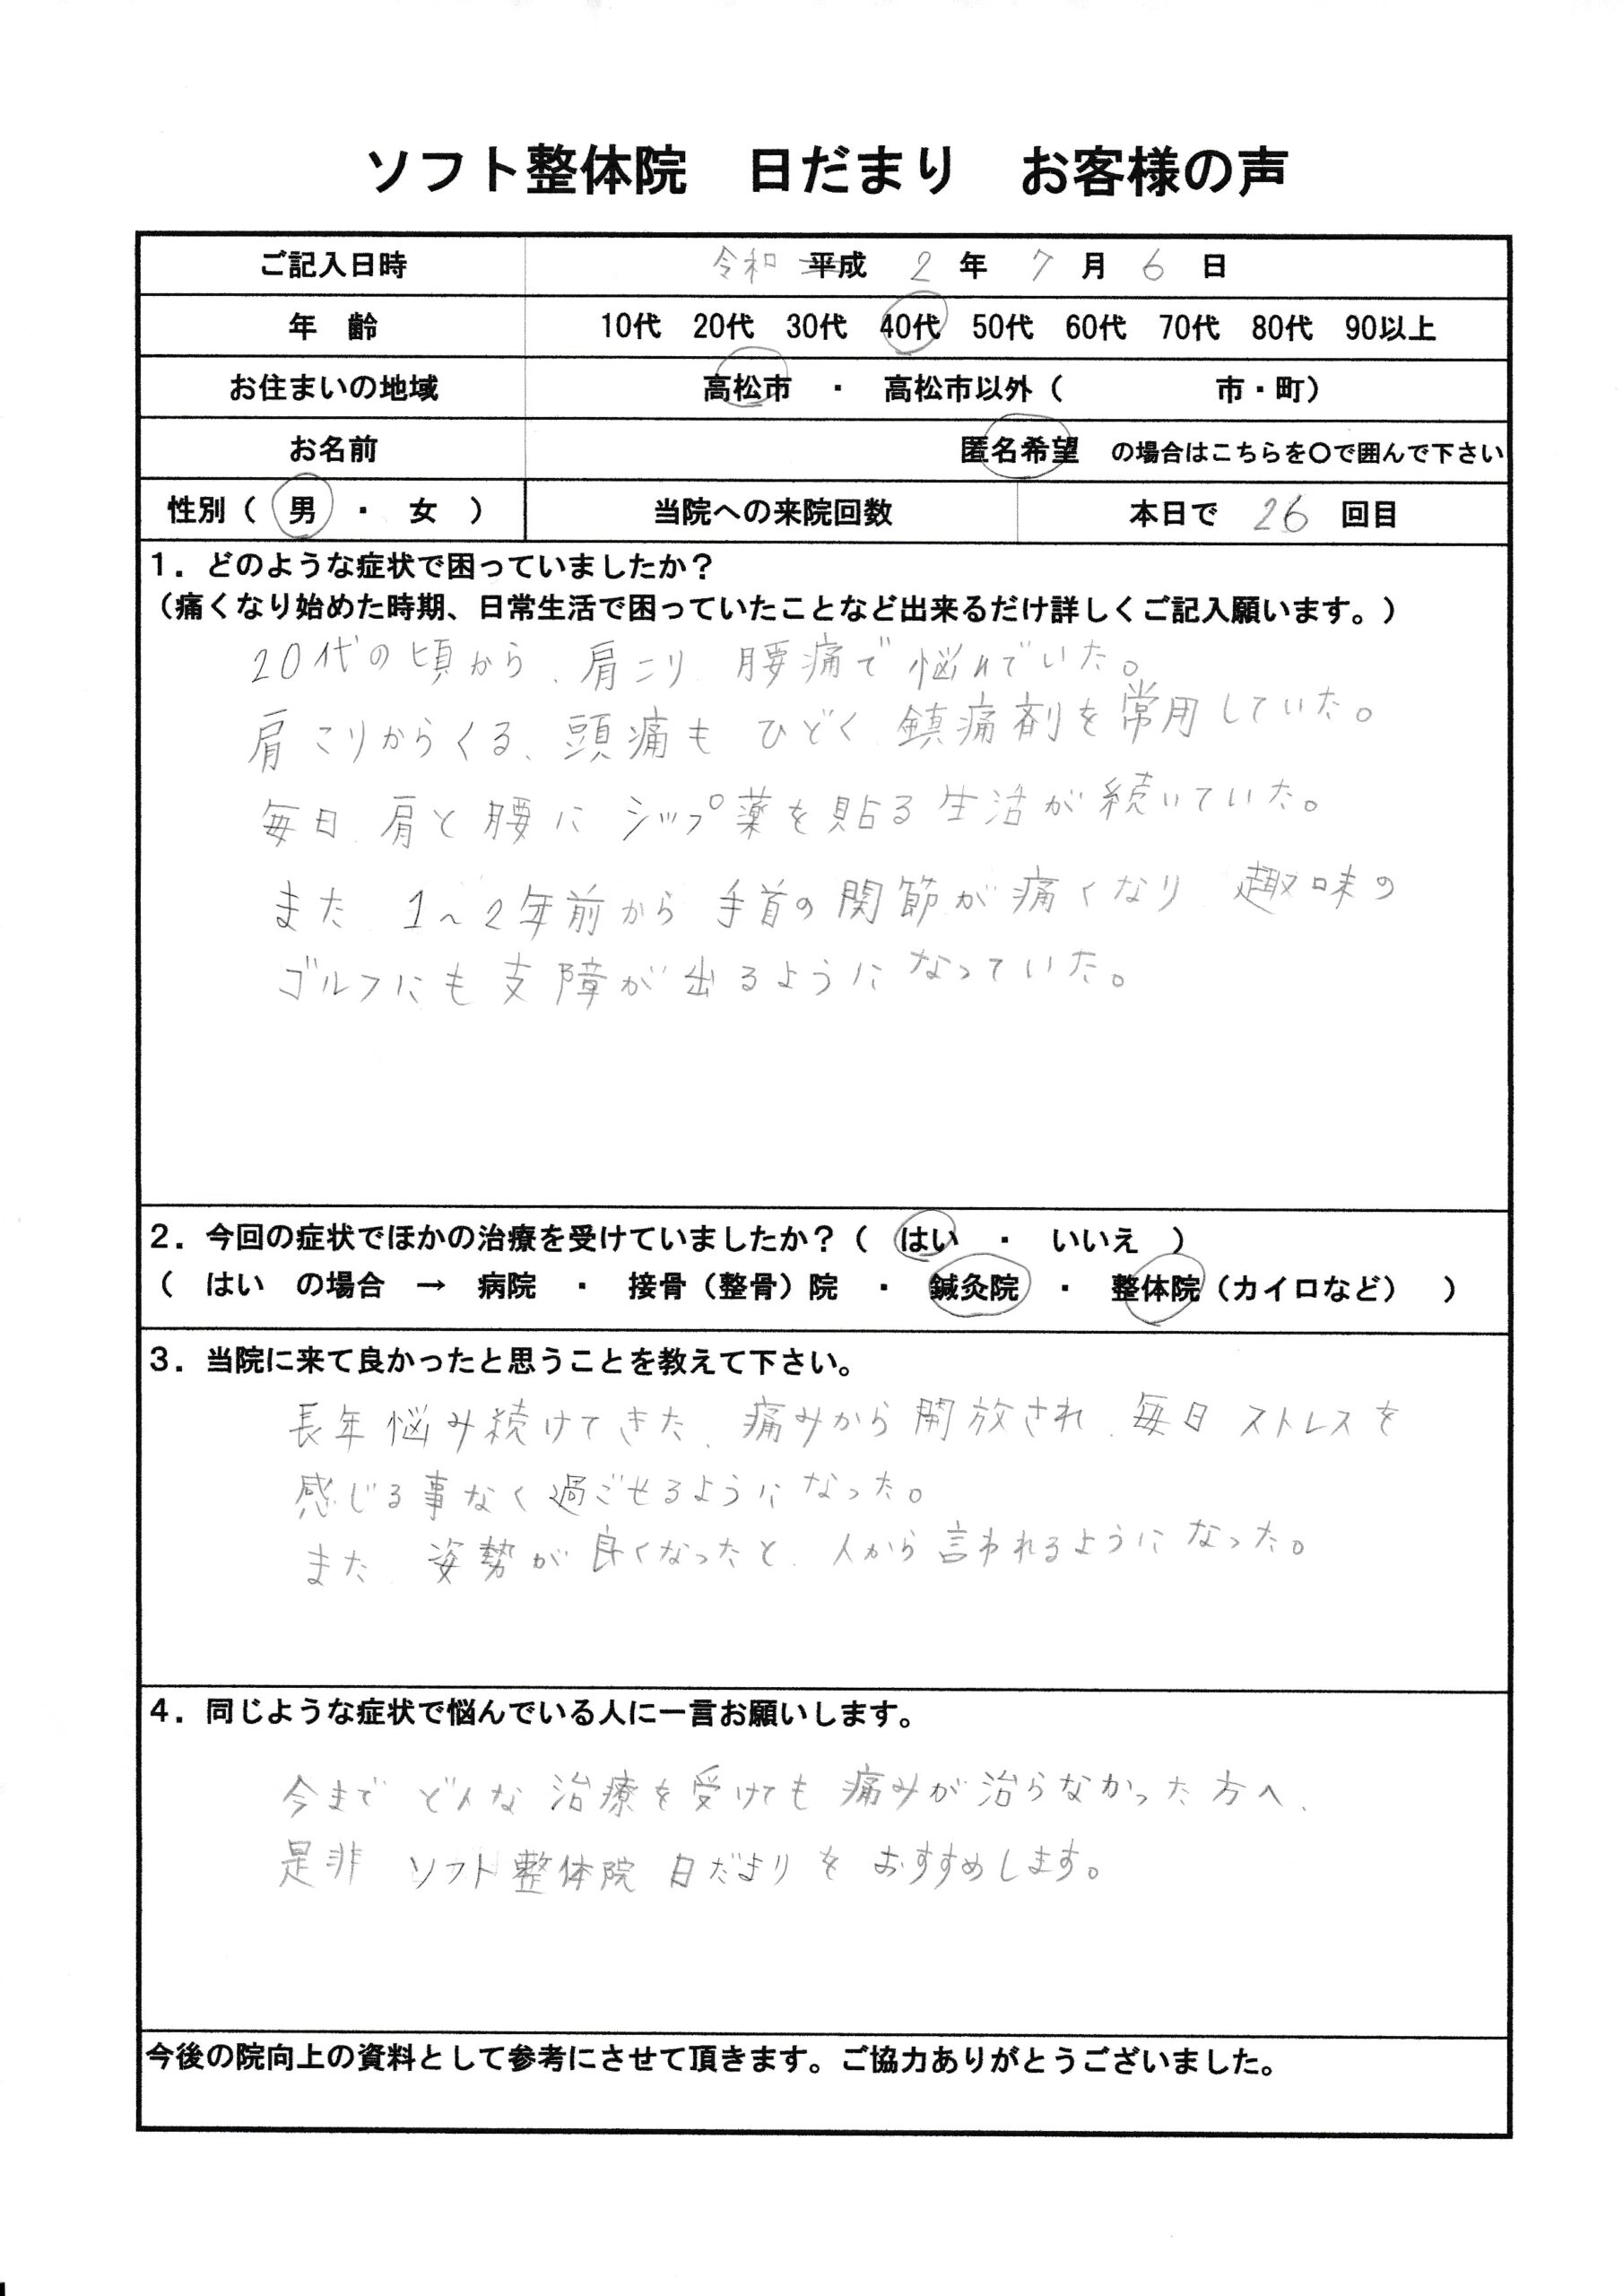 ソフト整体院　日だまり　お客様の声
ご記入日時　令和 平成 2 年 7 月 6 日
年　齢　10代　20代　30代　40代　50代　60代　70代　80代　90以上
お住まいの地域　高松市　・　高松市以外（　　　　　市・町）
お名前　匿名希望　の場合はこちらを〇で囲んで下さい
性別（　男　・　女　）　当院への来院回数　本日で　26　回目
1．どのような症状で困っていましたか？
（痛くなり始めた時期、日常生活で困っていたことなど出来るだけ詳しくご記入願います。）
20代の頃から、肩こり 腰痛で悩んでいた。
肩こりからくる、頭痛も ひどく 鎮痛剤を常用していた。
毎日、肩と腰に シップ薬を貼る生活が続いていた。
また 1～2年前から 手首の関節が痛くなり 趣味の
ゴルフにも支障が出るようになっていた。
2．今回の症状でほかの治療を受けていましたか？（　はい　・　いいえ　）
（　はい　の場合　→　病院　・　接骨（整骨）院　・　鍼灸院　・　整体院（カイロなど）　）
3．当院に来て良かったと思うことを教えて下さい。
長年悩み続けてきた、痛みから開放され、毎日ストレスを
感じる事なく過ごせるようになった。
また、姿勢が良くなったと、人から言われるようになった。
4．同じような症状で悩んでいる人に一言お願いします。
今まで どんな治療を受けても痛みが治らなかった方へ、
是非 ソフト整体院 日だまりを おすすめします。
今後の院向上の資料として参考にさせて頂きます。ご協力ありがとうございました。